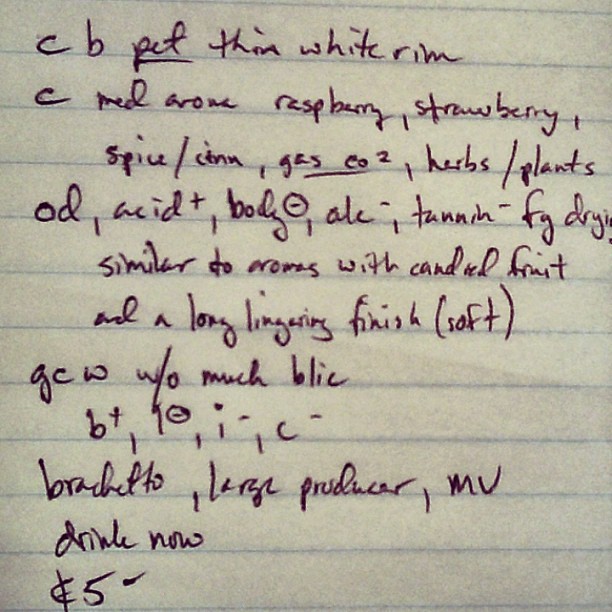 c b pet thin white rim
c med aroma raspberry, strawberry,
spice/cinn, gas co2, herbs/plants
od, acid+, body⊖, alc-, tannin- fg dryi
similar to aromas with candied fruit
and a long lingering finish (soft)
gcw w/o much blic
b+, l⊖, i-, c-
brachetto, large producer, MV
drink now
¢5-